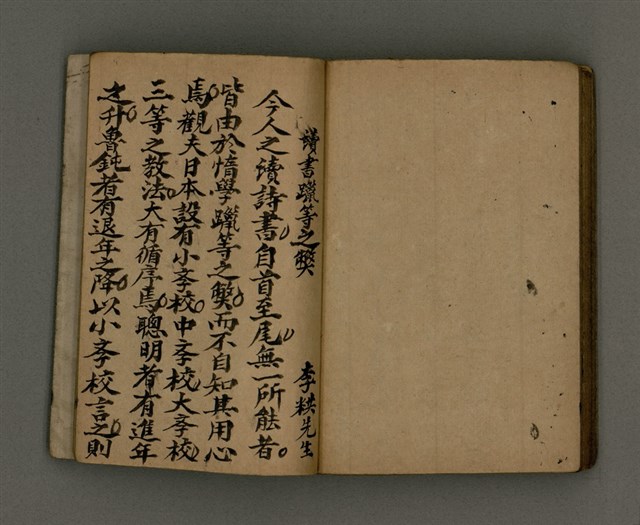 讀書躐等之獘 李粠先生
今人之讀詩書自首至尾無一所能者
皆由於惰學躐等之獘而不自知其用心
焉觀夫日本設有小斈校中斈校大斈校
三等之教法大有循序焉聰明者有進年
之升魯鈍者有退年之降以小斈校言之則